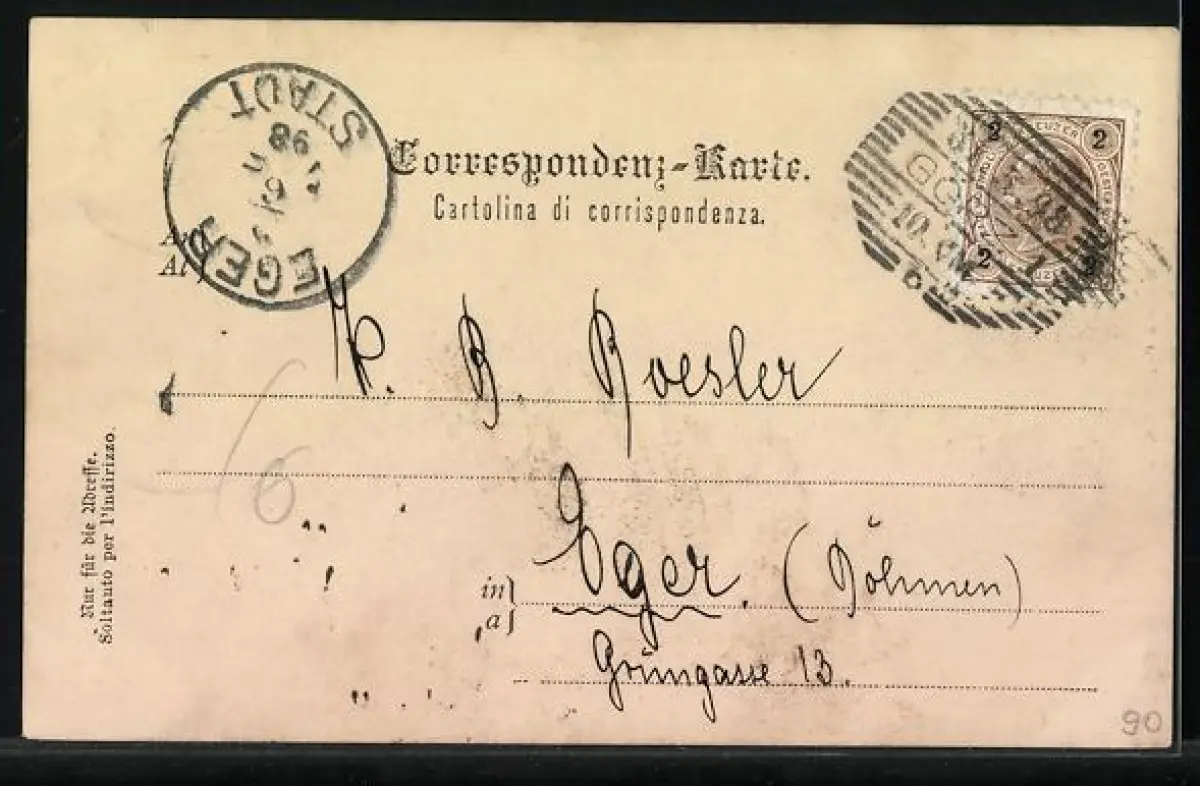 EGER
STADT
98
Correspondenz-Karte.
Cartolina di corrispondenza.
2 KREUZER 2
2
98
Al
H. B. Roesler
6
in
a
Eger. (Böhmen)
Grüngasse 13.
Nur für die Adresse.
Soltanto per l'indirizzo.
90